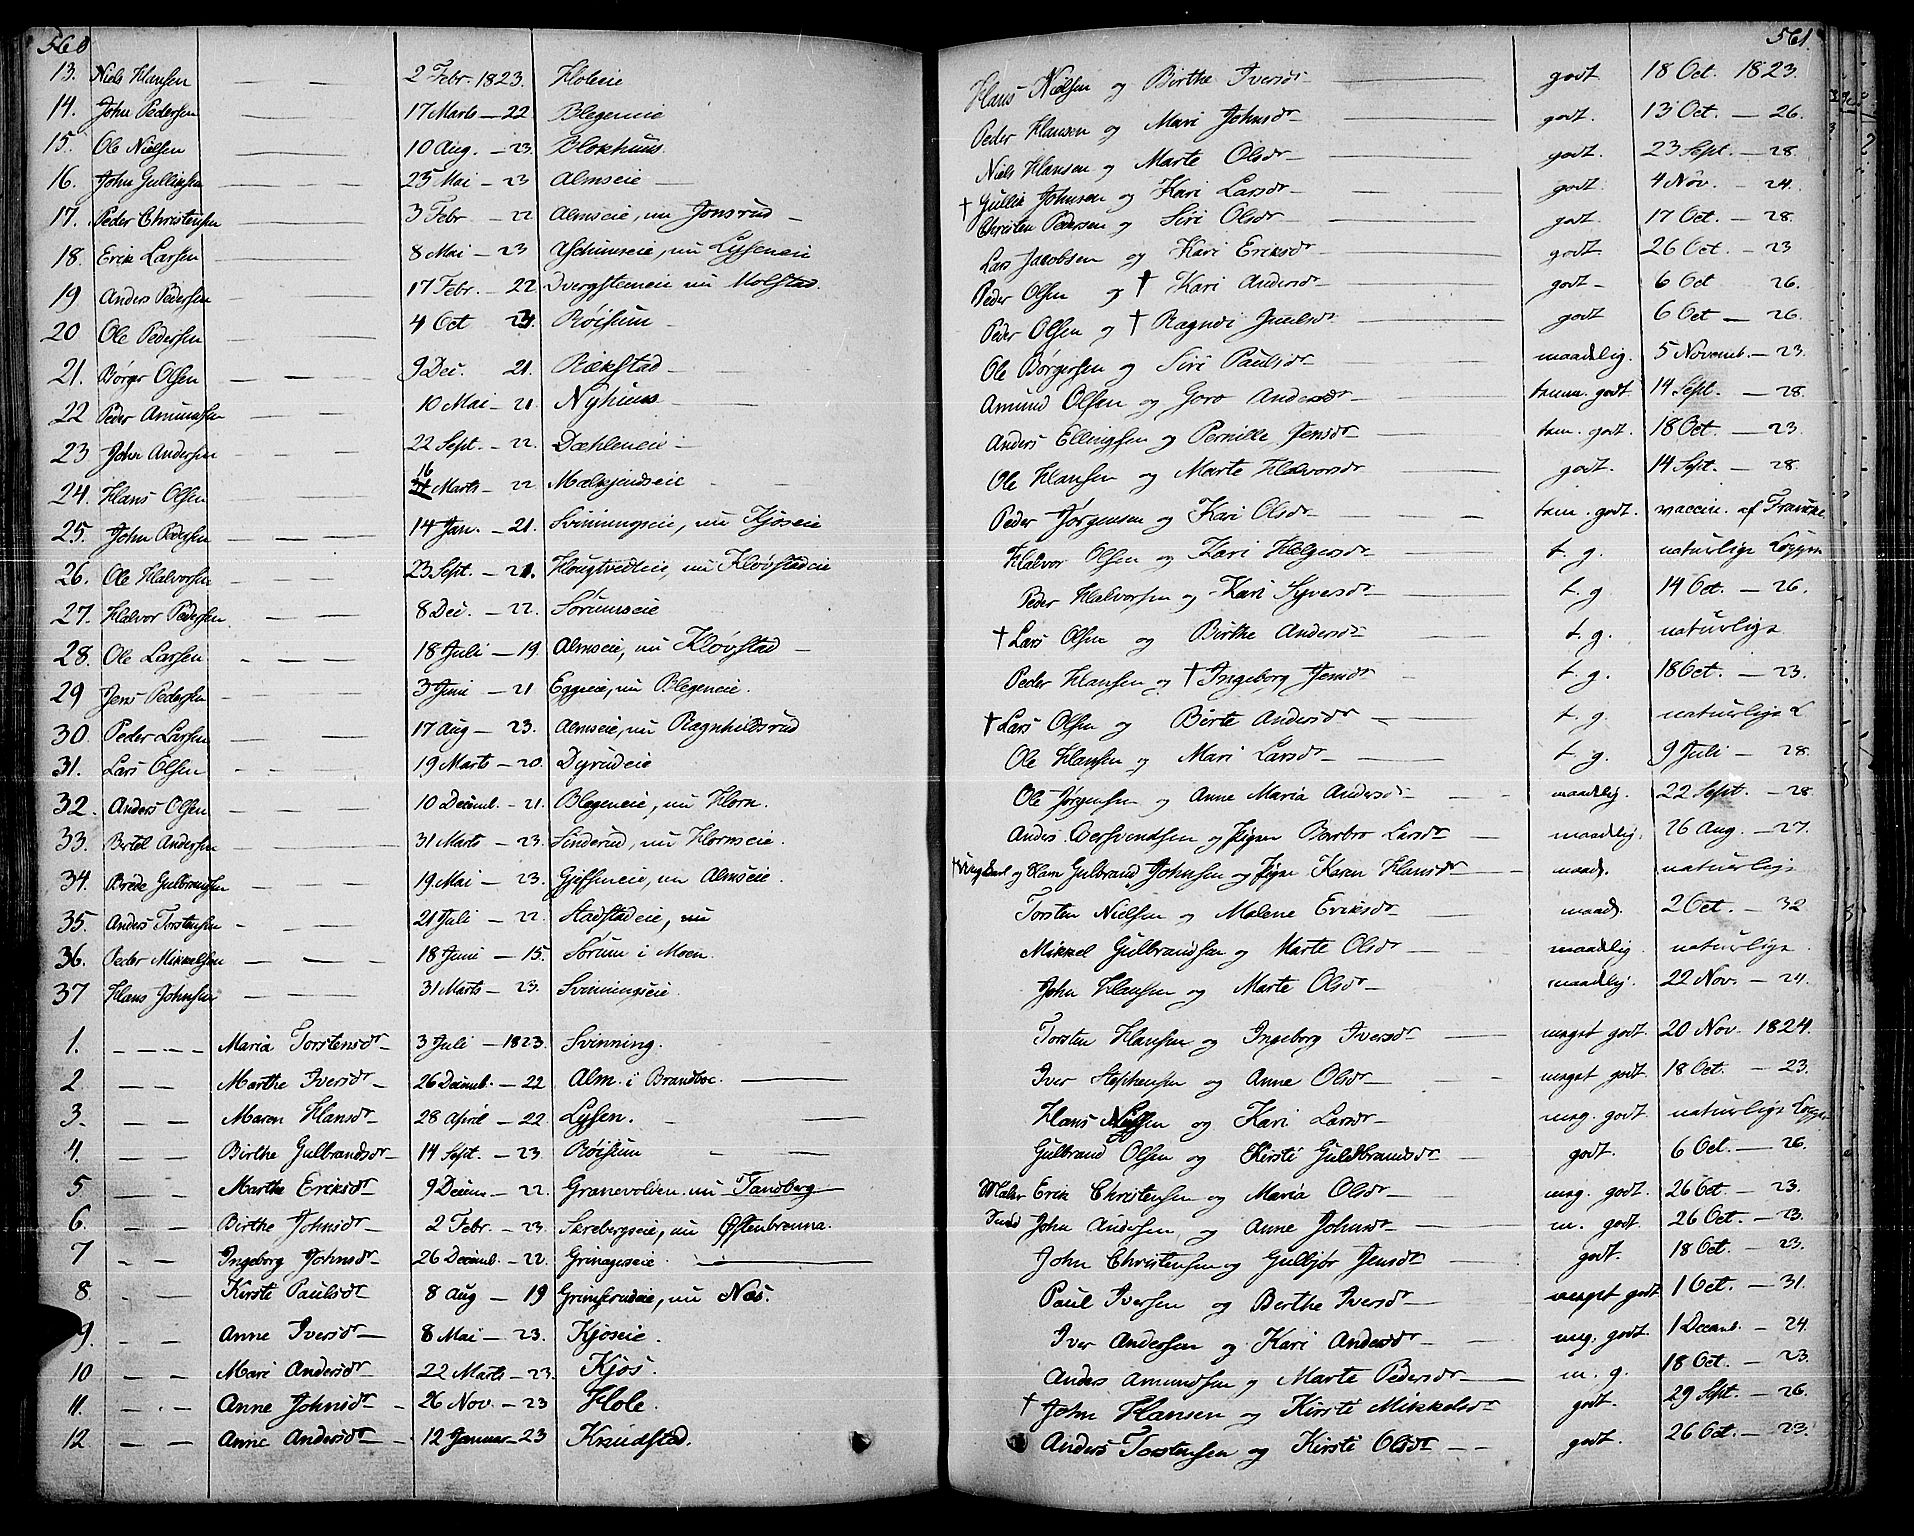 560
13. Niels Hansen — — — 2 Febr. 1823. Holeeie
14. John Pedersen — — — 17 Marts — 22 Blegeneie
15. Ole Nielsen — — — 10 Aug. — 23. Blokhuus.
16. John Gulliksen — — — 25 Mai — 23 Almseie —
17. Peder Christensen — — — 3 Febr — 22 Almseie, nu Jonsrud —
18. Erik Larsen — — — 8 Mai — 23 nu Lyseneie
19 Anders Pedersen — — — 17 Febr. — 22 Dvergsteneie nu Molstad.
20 Ole Pedersen — — — 4 Oct Røisum —
21. Børger Olsen — — — 9 Dec. 21. Rækstad —
22 Peder Amundsen — — — 10 Mai — 21 Nyhuus —
23 John Andersen — — — 22 Sept. — 22. Dæhleneie —
24. Hans Olsen — — — 16 Marts — 22 Mælsjendseie
25. John Pedersen — — — 14 Jan. — 21. Svinningseie, nu Kjoseie
26. Ole Halvorsen — — — 23 Sept. — 21. Hougtvedteie, nu Kløvstadeie
27. Halvor Pedersen — — — 8 Dec. — 22. Sørumseie
28. Ole Larsen — — — 18 Juli — 19. Almseie, nu Kløvstad —
29 Jens Pedersen — — — 3 Juni — 21 Eggeeie, nu Blegeneie.
30. Peder Larsen — — — 17 Aug — 23. Almseie, nu Ragnhildsrud
31. Lars Olsen — — — 19 Marts — 20. Dyrudeie
32. Anders Olsen — — — 10 Decemb. — 21. Blegeneie, nu Horn.
33. Bertel Andersen — — — 31 Marts — 23. Sinderud, nu Hornseie.
34. Brede Gulbrandsen — — — 19. Mai — 23. nu Almseie.
35. Anders Torstensen — — — 21 Juli — 22. Stadstadeie, nu
36. Peder Mikkelsen — — — 18 Juni — 15. Sørum i Moen.
37 Hans Johnsen — — — 31 Marts — 23. Svinningseie.
1. — — — Maria Torstensdr — 3 Juli — 1823. Svinning.
2 — — Marthe Iversdr — 26 Decemb. — 22 Alm. i Brandboe. —
3. — — Maren Hansdr 28 April — 22. Lysen. —
4. — — Birthe Gulbrandsdr — 14 Sept. — 23. Røisum
5 — — Marthe Eriksdr 9 Decem — 22. Granevolden nu Tandberg —
6. — — Birthe Johnsdr — 2 Febr. — 23. Skrebergseie, nu Østenbrenna.
7 — — Ingeborg Johnsdr — 26 Decemb. — 22. Grinageseie. —
8. — — Kirsti Paulsdr 8 Aug — 19 Grimsrudeie, nu Næs.
9. — — Anne Iversdr — 8 Mai — 23. Kjoseie.
10 — — Mari Andersdr 22 Marts — 23. Kjos.
11. — — Anne Johnsdr — 26 Nov. — 23 Hole.
12. — — Anne Andersdr — 12 Januar — 23 Knudstad.
561.
Hans Nielsen og Birthe Iversdr — godt. 18 Oct. 1823.
Peder Hansen og Mari Johnsdr — godt. 13 Oct. — 26.
Niels Hansen og Marte Olsdr — godt. 23 Sept. — 28.
† Gullik Johnsen og Kari Larsdr — godt. 4 Nov. — 24.
Christen Pedersen og Siri Olsdr — godt. 17 Oct. — 28.
Lars Jacobsen og Kari Eriksdr — godt. 26 Oct. — 23
Peder Olsen og † Kari Andersdr — godt — 6 Oct 26.
Peder Olsen og † Ragndi — godt 6 Oct — 26.
Ole Børgersen og Siri Paulsdr — maadelig. 5 Novemb. — 23.
Amund Olsen og Goro Andersdr — temm. godt. 14 Sept. — 28.
Anders Ellingsen og Pernille Jensdr — tem. godt. 18 Oct. — 23.
Ole Hansen og Marte Halvorsdr — godt. 14 Sept. — 28.
Peder Jørgensen og Kari Olsdr — tem. godt. vaccin. af
Halvor Olsen og Kari Holgersdr — t. g. naturlige Kopper
Peder Halvorsen og Kari Syversdr — t. g 14 Oct. — 26.
† Lars Olsen og Birthe Andersdr — t. g. naturlige
Peder Hansen og † Ingeborg Jensdr — t. g. 18 Oct. — 23.
† Lars Olsen og Birte Andersdr — t. g. naturlige K
Ole Hansen og Mari Larsdr — t. g. 9 Juli — 28.
Ole Jørgensen og Anne Maria Andersdr — maadelig. 22 Sept. — 28
Anders og Pigen Barbro Larsdr — maadelig. 26 Aug. — 27.
Gulbrand Johnsen og Pigen Karen Hansdr — maad. naturlige
Torsten Nielsen og Malene Eriksdr — maad. 2 Oct. — 32
Mikkel Gulbrandsen og Marte Olsdr — maadelig naturlige.
John Hansen og Marte Olsdr — maadelig. 22 Nov. — 24.
Torsten Hansen og Ingeborg Iversdr — meget godt. 20 Nov. 1824.
Iver Stephensen og Anne Olsdr — meget godt. 18 Oct. — 23.
Hans og Kari Larsdr — meg. godt naturlige Kopper
Gulbrand Olsen og Kirsti Guldbrandsdr — godt. 6 Oct. — 26.
Maler Erik Christensen og Maria Olsdr — meg. godt. 26 Oct. — 23.
John Andersen og Anne Johnsdr — m. godt. 26 Oct. — 23.
John Christensen og Gulbjør Jensdr — godt. 18 Oct. — 23.
Paul Iversen og Berthe Iversdr — meget godt 1 Oct. — 31.
Iver Andersen og Kari Andersdr — meg. godt. 1 Decemb. — 24.
Anders Amundsen og Marte Pedersdr — m. g. 18 Oct. — 23.
† John Hansen og Kirsti Mikkelsdr — godt. 29 Sept. — 26.
Anders Torstensen og Kirsti Olsdr — — godt. 26 Oct. — 23.